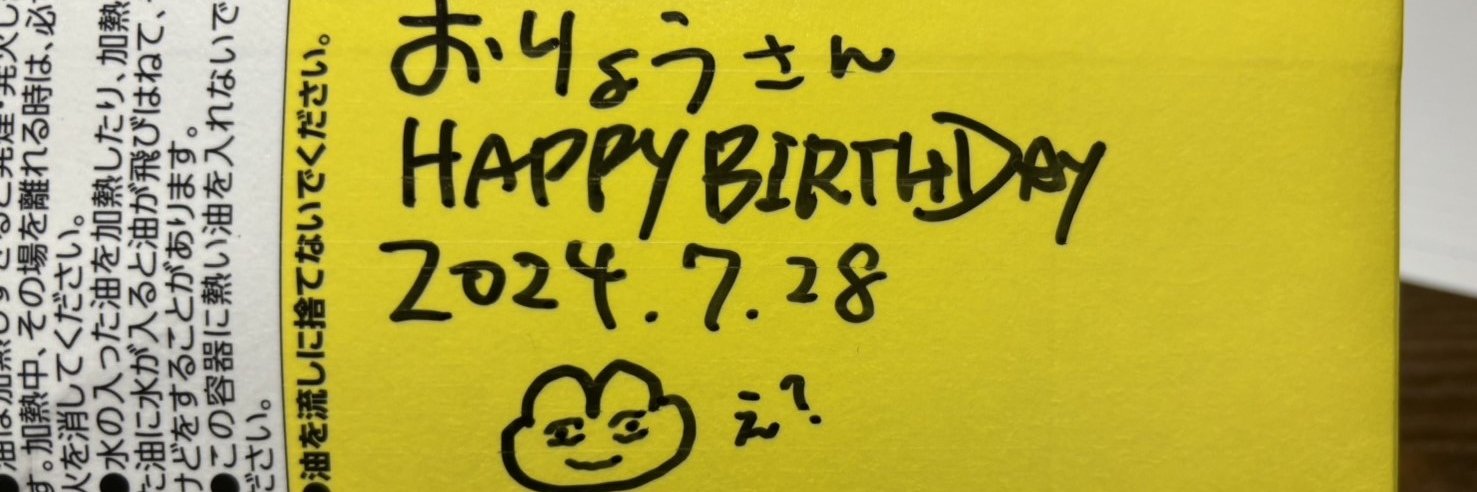 おりょうさん
HAPPY BIRTHDAY
2024.7.28
え?
●油を流しに捨てないでください。
す。加熱中、その場を離れる時は、必
火を消してください。
●水の入った油を加熱したり、加熱
た油に水が入ると油が飛びはねて、
けどをすることがあります。
●この容器に熱い油を入れないで
ださい。